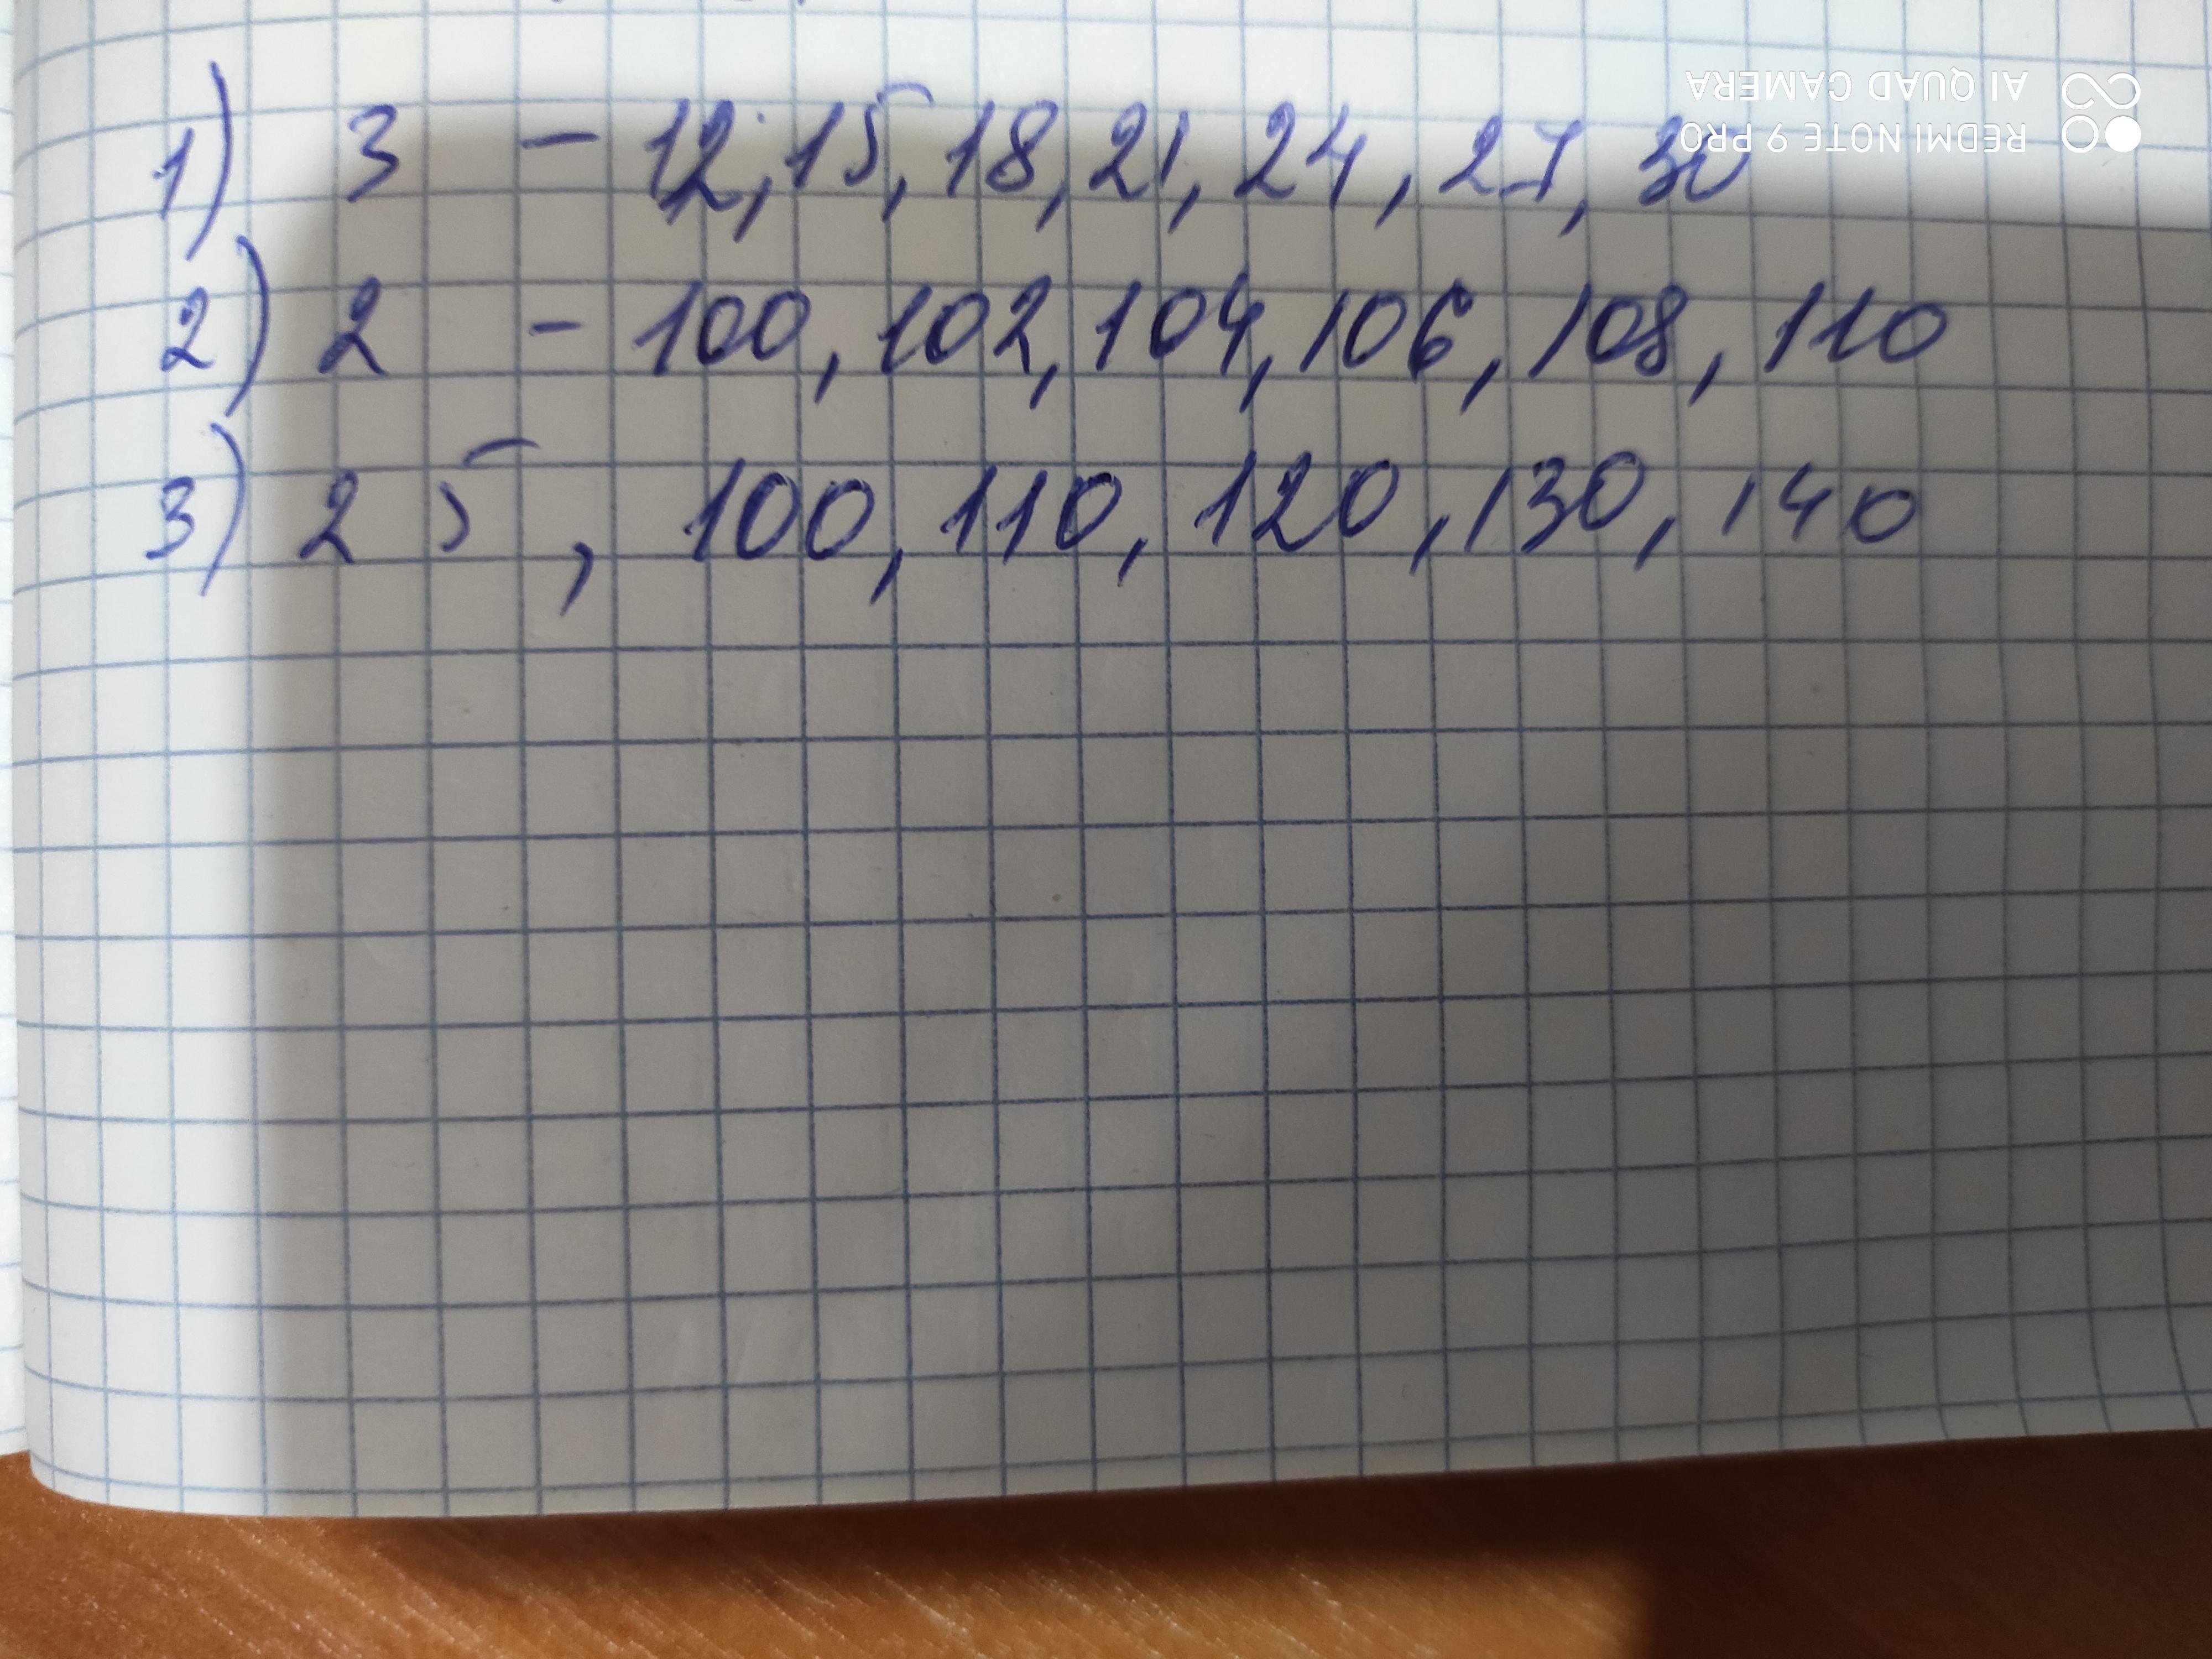 1) 3 - 12, 15, 18, 21, 24, 27, 30
2) 2 - 100, 102, 104, 106, 108, 110
3) 2 5, 100, 110, 120, 130, 140
REDMI NOTE 9 PRO
AI QUAD CAMERA